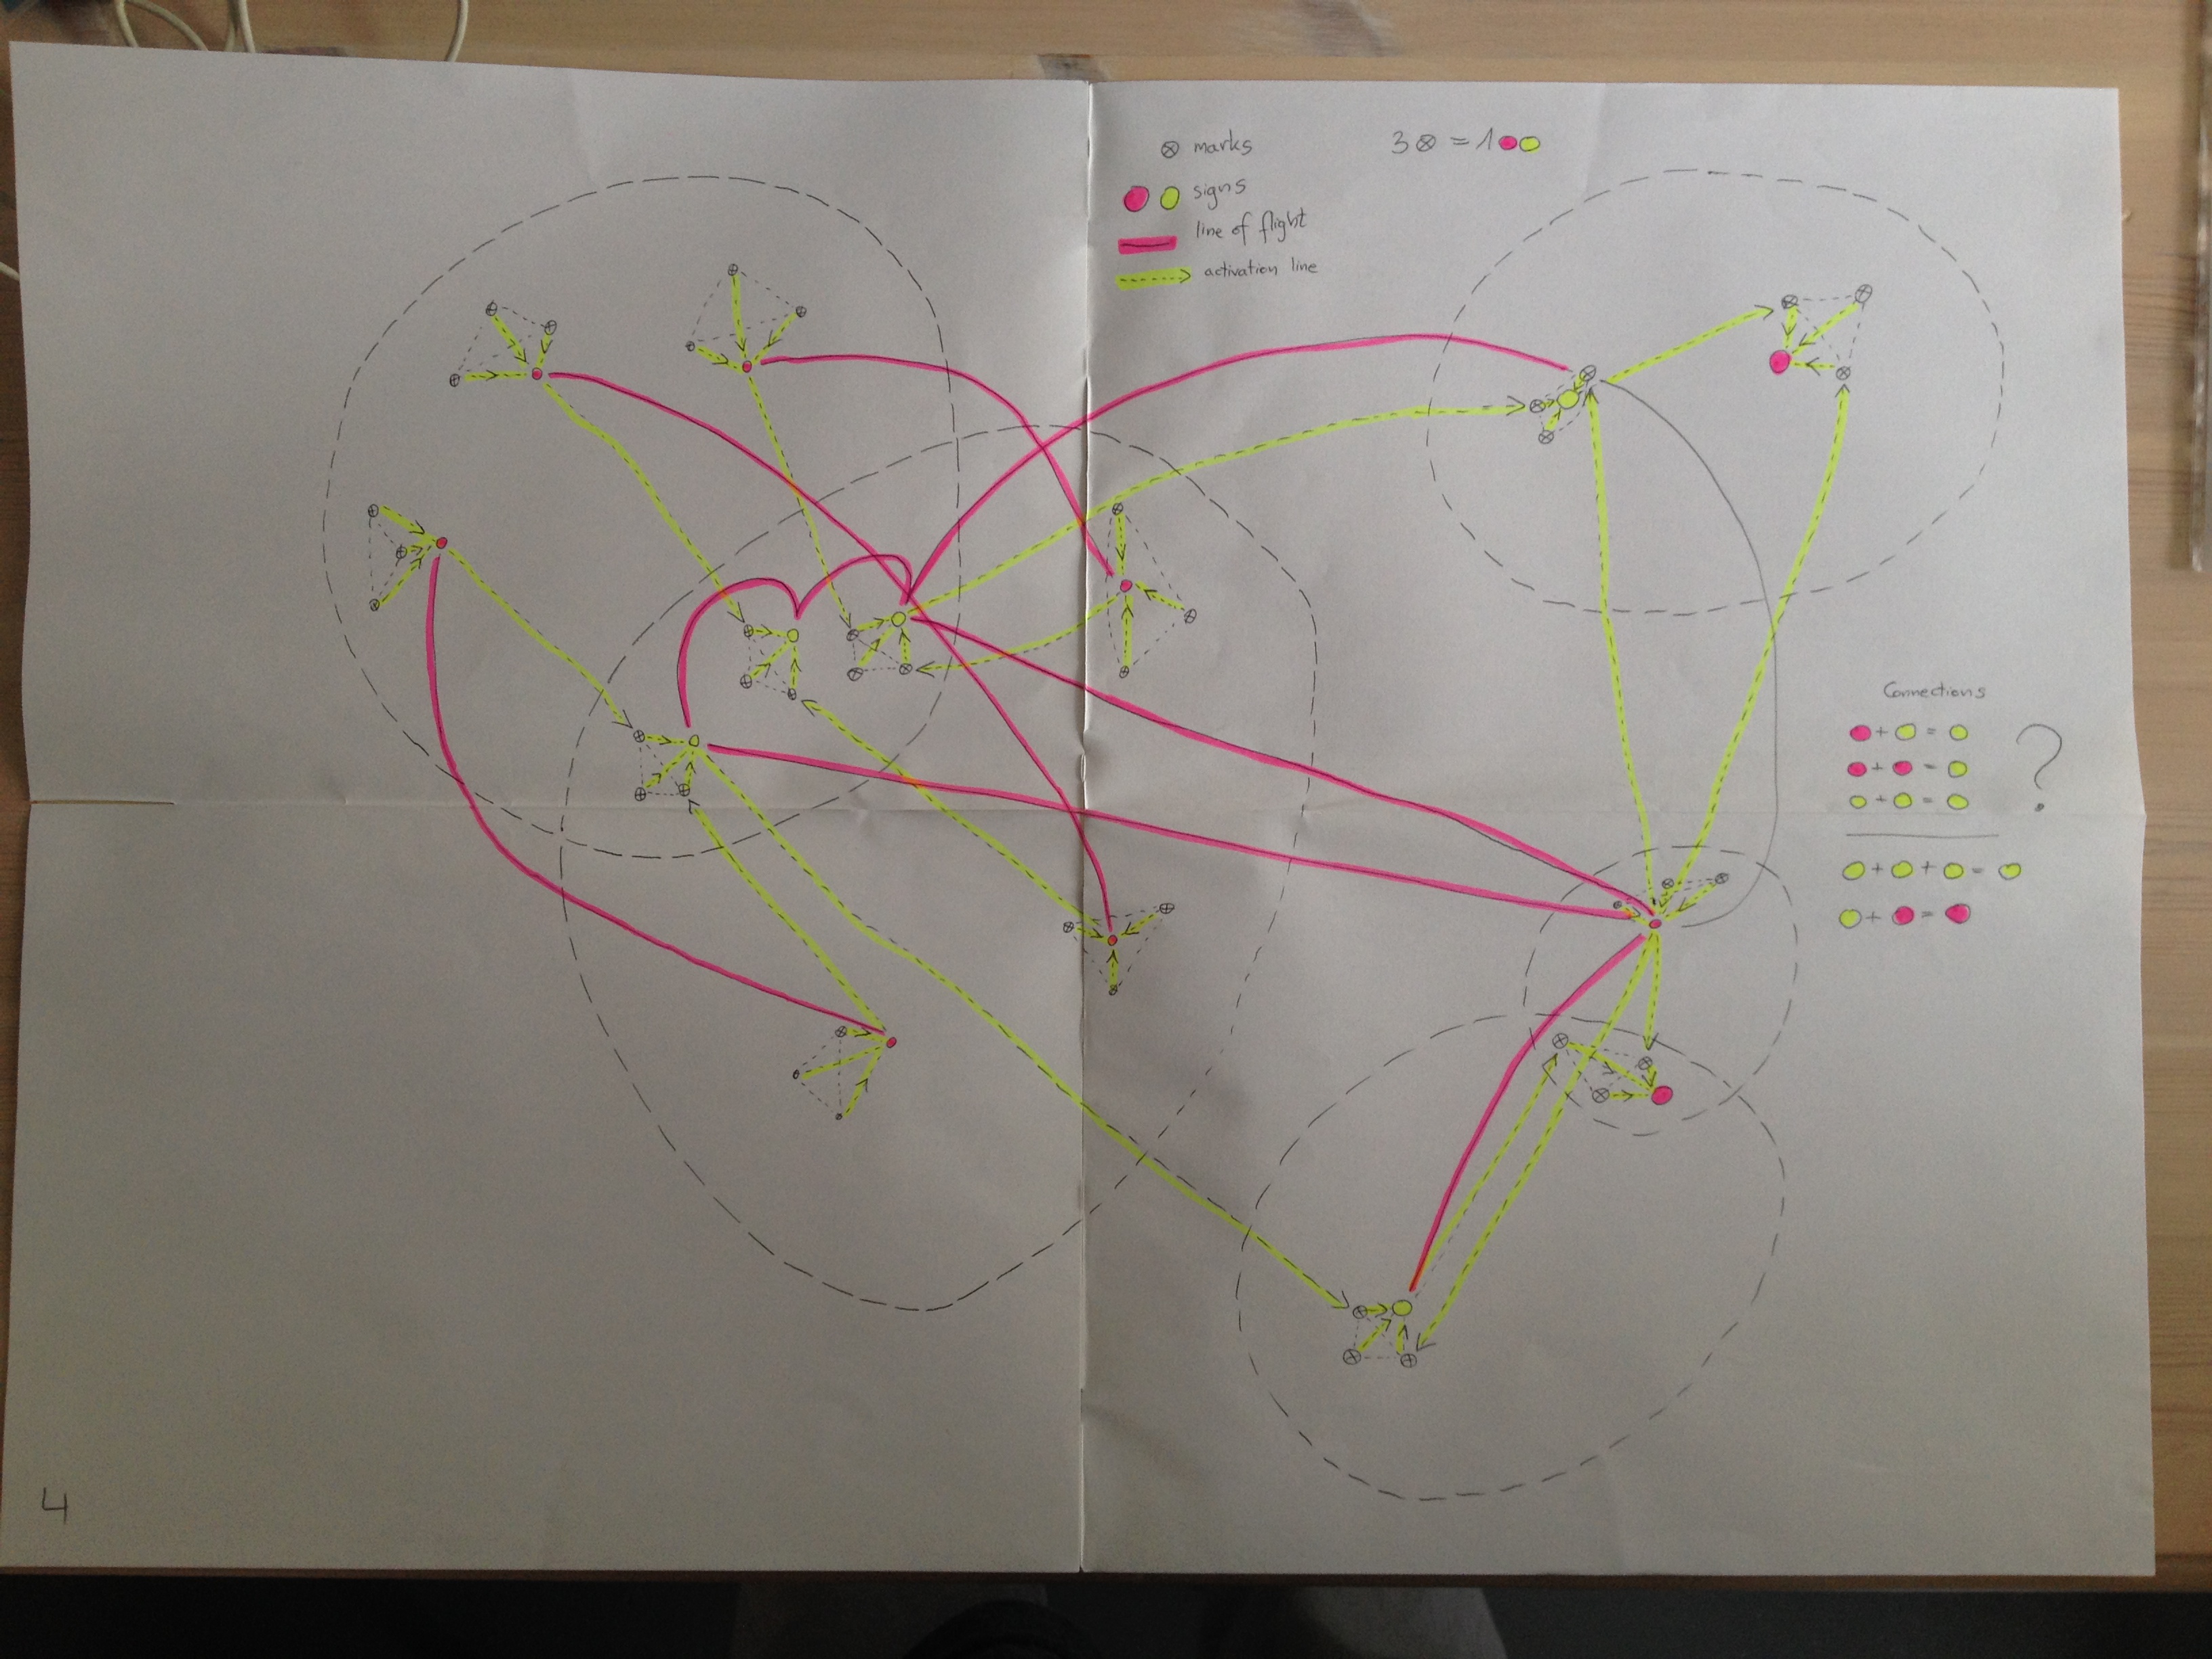 ⊗ marks
3⊗ = 1
signs
line of flight
activation line
Connections
+ =
+ = ?
+ =
+ + =
+ =
4